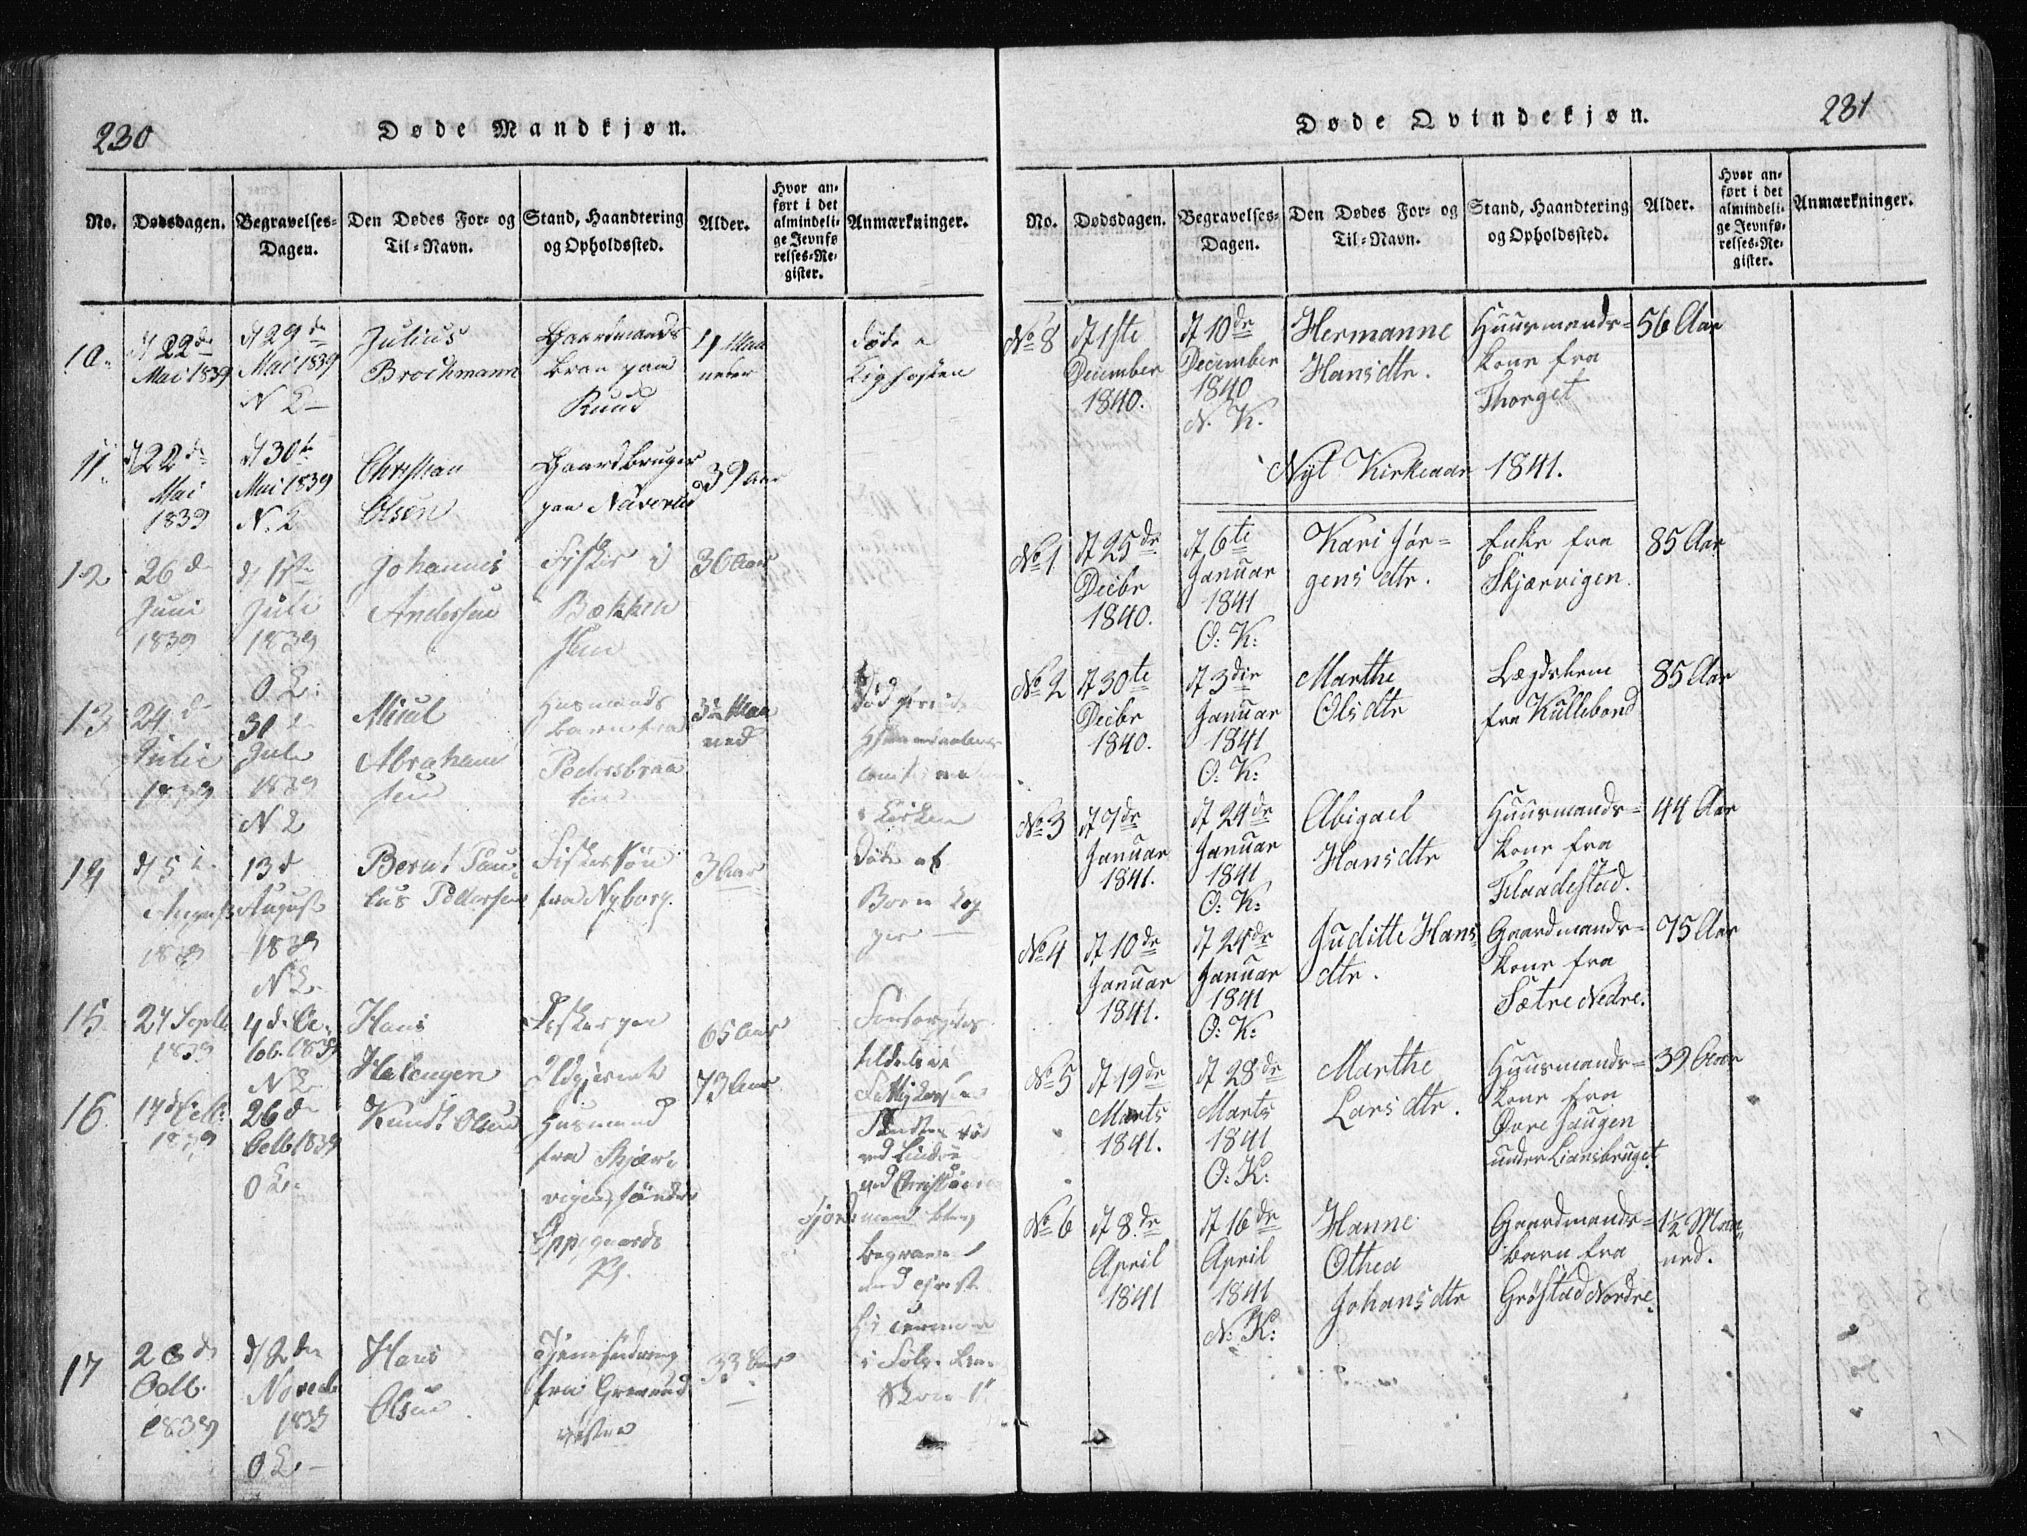 230
Døde Mandkjøn.
No.
Dødsdagen.
Begravelses-
Dagen.
Den Dødes For- og
Til-Navn.
Stand, Haandtering
og Opholdssted.
Alder.
Hvor an-
ført i det
almindeli-
ge Jevnfø
relses-Re-
gister.
Anmærkninger.
10.
d 22de
Mai 1839
d 29de
Mai 1839
N K
Julius
Brochmann
Gaardmands
barn paa
Ruud
døde
Kighosten
11.
d 22de
Mai
1839
d 30te
Mai 1839
N. K
Christian
Olsen
Gaardbruger
paa Näverud
39 Aar
12
26de
Juni
1839
d 1ste
Juli
1839
O K.
Johannes
Andersen
Fisker i
Bækken
sten
36 Aar
13
24de
Julie
1839
30te
Juli
1839
N K
Abraham
sen
Husmands
barn fra
Pedersbraa
ten
Maa
ned
i Kirken
14
d 5te
August
1839
13de
August
1839
N K.
Bernt Pau-
lus Pedersen
Fiskersön
fra Nyborg.
3 Aar
Døde af
Børne Kop
per
15
27 Septb.
1839
4de Oc-
tob. 1839
N K
Hans
Halvegen
Fisker paa
65 Aar
16
17de Octb.
1839
26de
Octb 1839
O K.
Knudt Olsen
Husmand
fra Skjær-
vigen, sönder
Oppegaards
Pl.
73 Aar
17
28de
Octb.
1839
d 2den
Novemb.
1839
O K.
Hans
Olsen
fra Grevrud
vestre
33 Aar
281
Døde Qvindekjøn.
No.
Dødsdagen.
Begravelses-
Dagen.
Den Dødes For- og
Til-Navn.
Stand, Haandtering
og Opholdssted.
Alder.
Hvor an-
ført i det
almindeli-
ge Jevnfø-
relses-Re-
gister.
Anmærkninger.
No 8
d 1ste
December
1840.
d 10de
December
1840
N. K.
Hermanne
Hansdtr.
Huusmands-
kone fra
Thorget
56 Aar
Nyt Kirkeaar 1841.
No 1
d 25de
Decbr
1840.
d 6te
Januar
1841
O: K:
Kari Jør-
gensdtr.
Enke fra
Skjærvigen.
85 Aar
No 2
d 30te
Decbr
1840.
d 3die
Januar
1841
O: K:
Marthe
Olsdtr
Lægdslem
fra Kullebond
85 Aar
No 3
d 7de
Januar
1841.
d 24de
Januar
1841
O: K:
Abigael
Hansdtr
Huusmands-
kone fra
Flaadestad.
44 Aar
No 4
d 10de
Januar
1841.
d 24de
Januar
1841
O: K:
Juditte Hans-
dtr.
Gaardmands-
kone fra
Sætre Nedre.
75 Aar
No 5
d 19de
Marts
1841.
d 28de
Marts
1841
O: K:
Marthe
Larsdtr.
Huusmands-
kone fra
Øvre Haugen
under Liansbruget.
39 Aar
No 6
d 8de
April
1841
d 16de
April
1841
N: K:
Hanne
Othea
Johansdtr
Gaardmands-
barn fra
Grøstad Nordre.
1½ Maa-
ned.